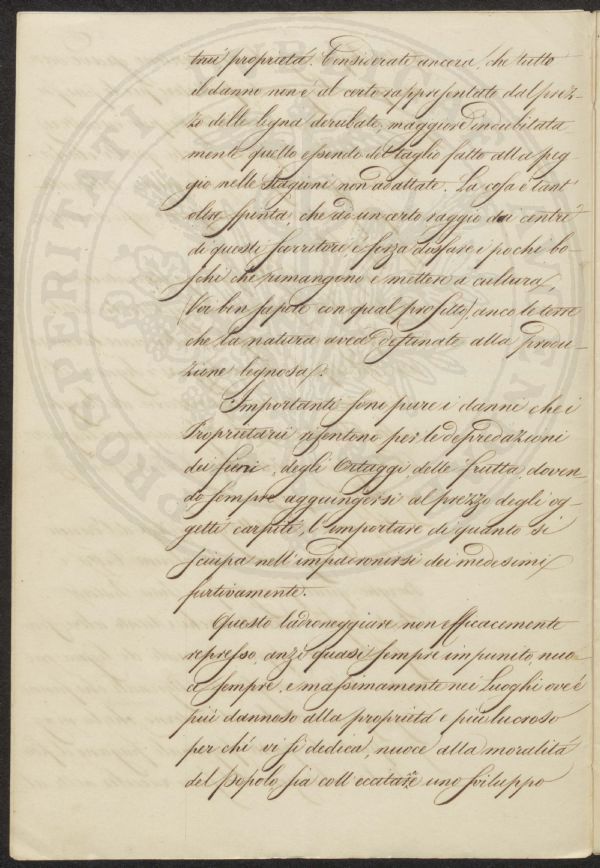 trui proprietá. Considerate ancora, che tutto
il danno non é al certo rappresentate dal prez-
zo delle legna derubate, maggiore incubitata
mente quello essendo del taglio fatto alla peg
gio nelle Stagioni non adattate. La cosa é tant'
oltre spinta, che ad un certo raggio dai centri
di queste scorrerie, é forza disfare i pochi bo-
schi che rimangono e mettere a cultura,
(Voi ben sapete con qual profitto) anco le terre
che la natura avea destinate alla produ-
zione legnosa.
Importanti sono pure i danni che i
Proprietarii risentono per le depredazioni
dei fieni, degli Ortaggi, delle frutta, doven
do sempre aggiungersi al prezzo degli og-
getti carpiti, l'importare di quanto si
sciupa nell'impadronirsi dei medesimi
furtivamente.
Questo ladroneggiare non efficacemente
represso, anzi quasi sempre impunito, nuo-
ce sempre, e massimamente nei Luoghi ove é
piú dannoso alla proprietá e piú lucroso
per chi vi si dedica, nuoce alla moralitá
del Popolo sia coll' uno sviluppo
PROSPERITATI PUBLICAE